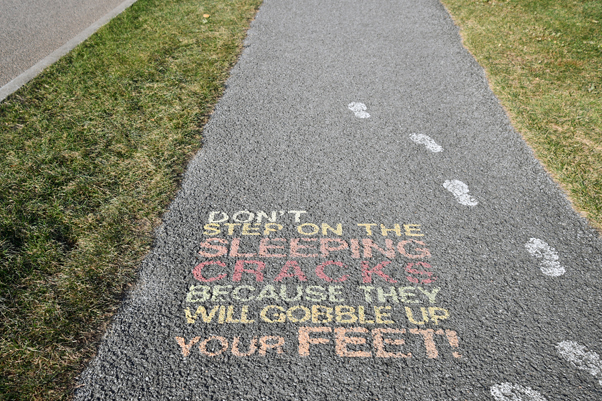 DON'T
STEP ON THE
SLEEPING
CRACKS
BECAUSE THEY
WILL GOBBLE UP
YOUR FEET!